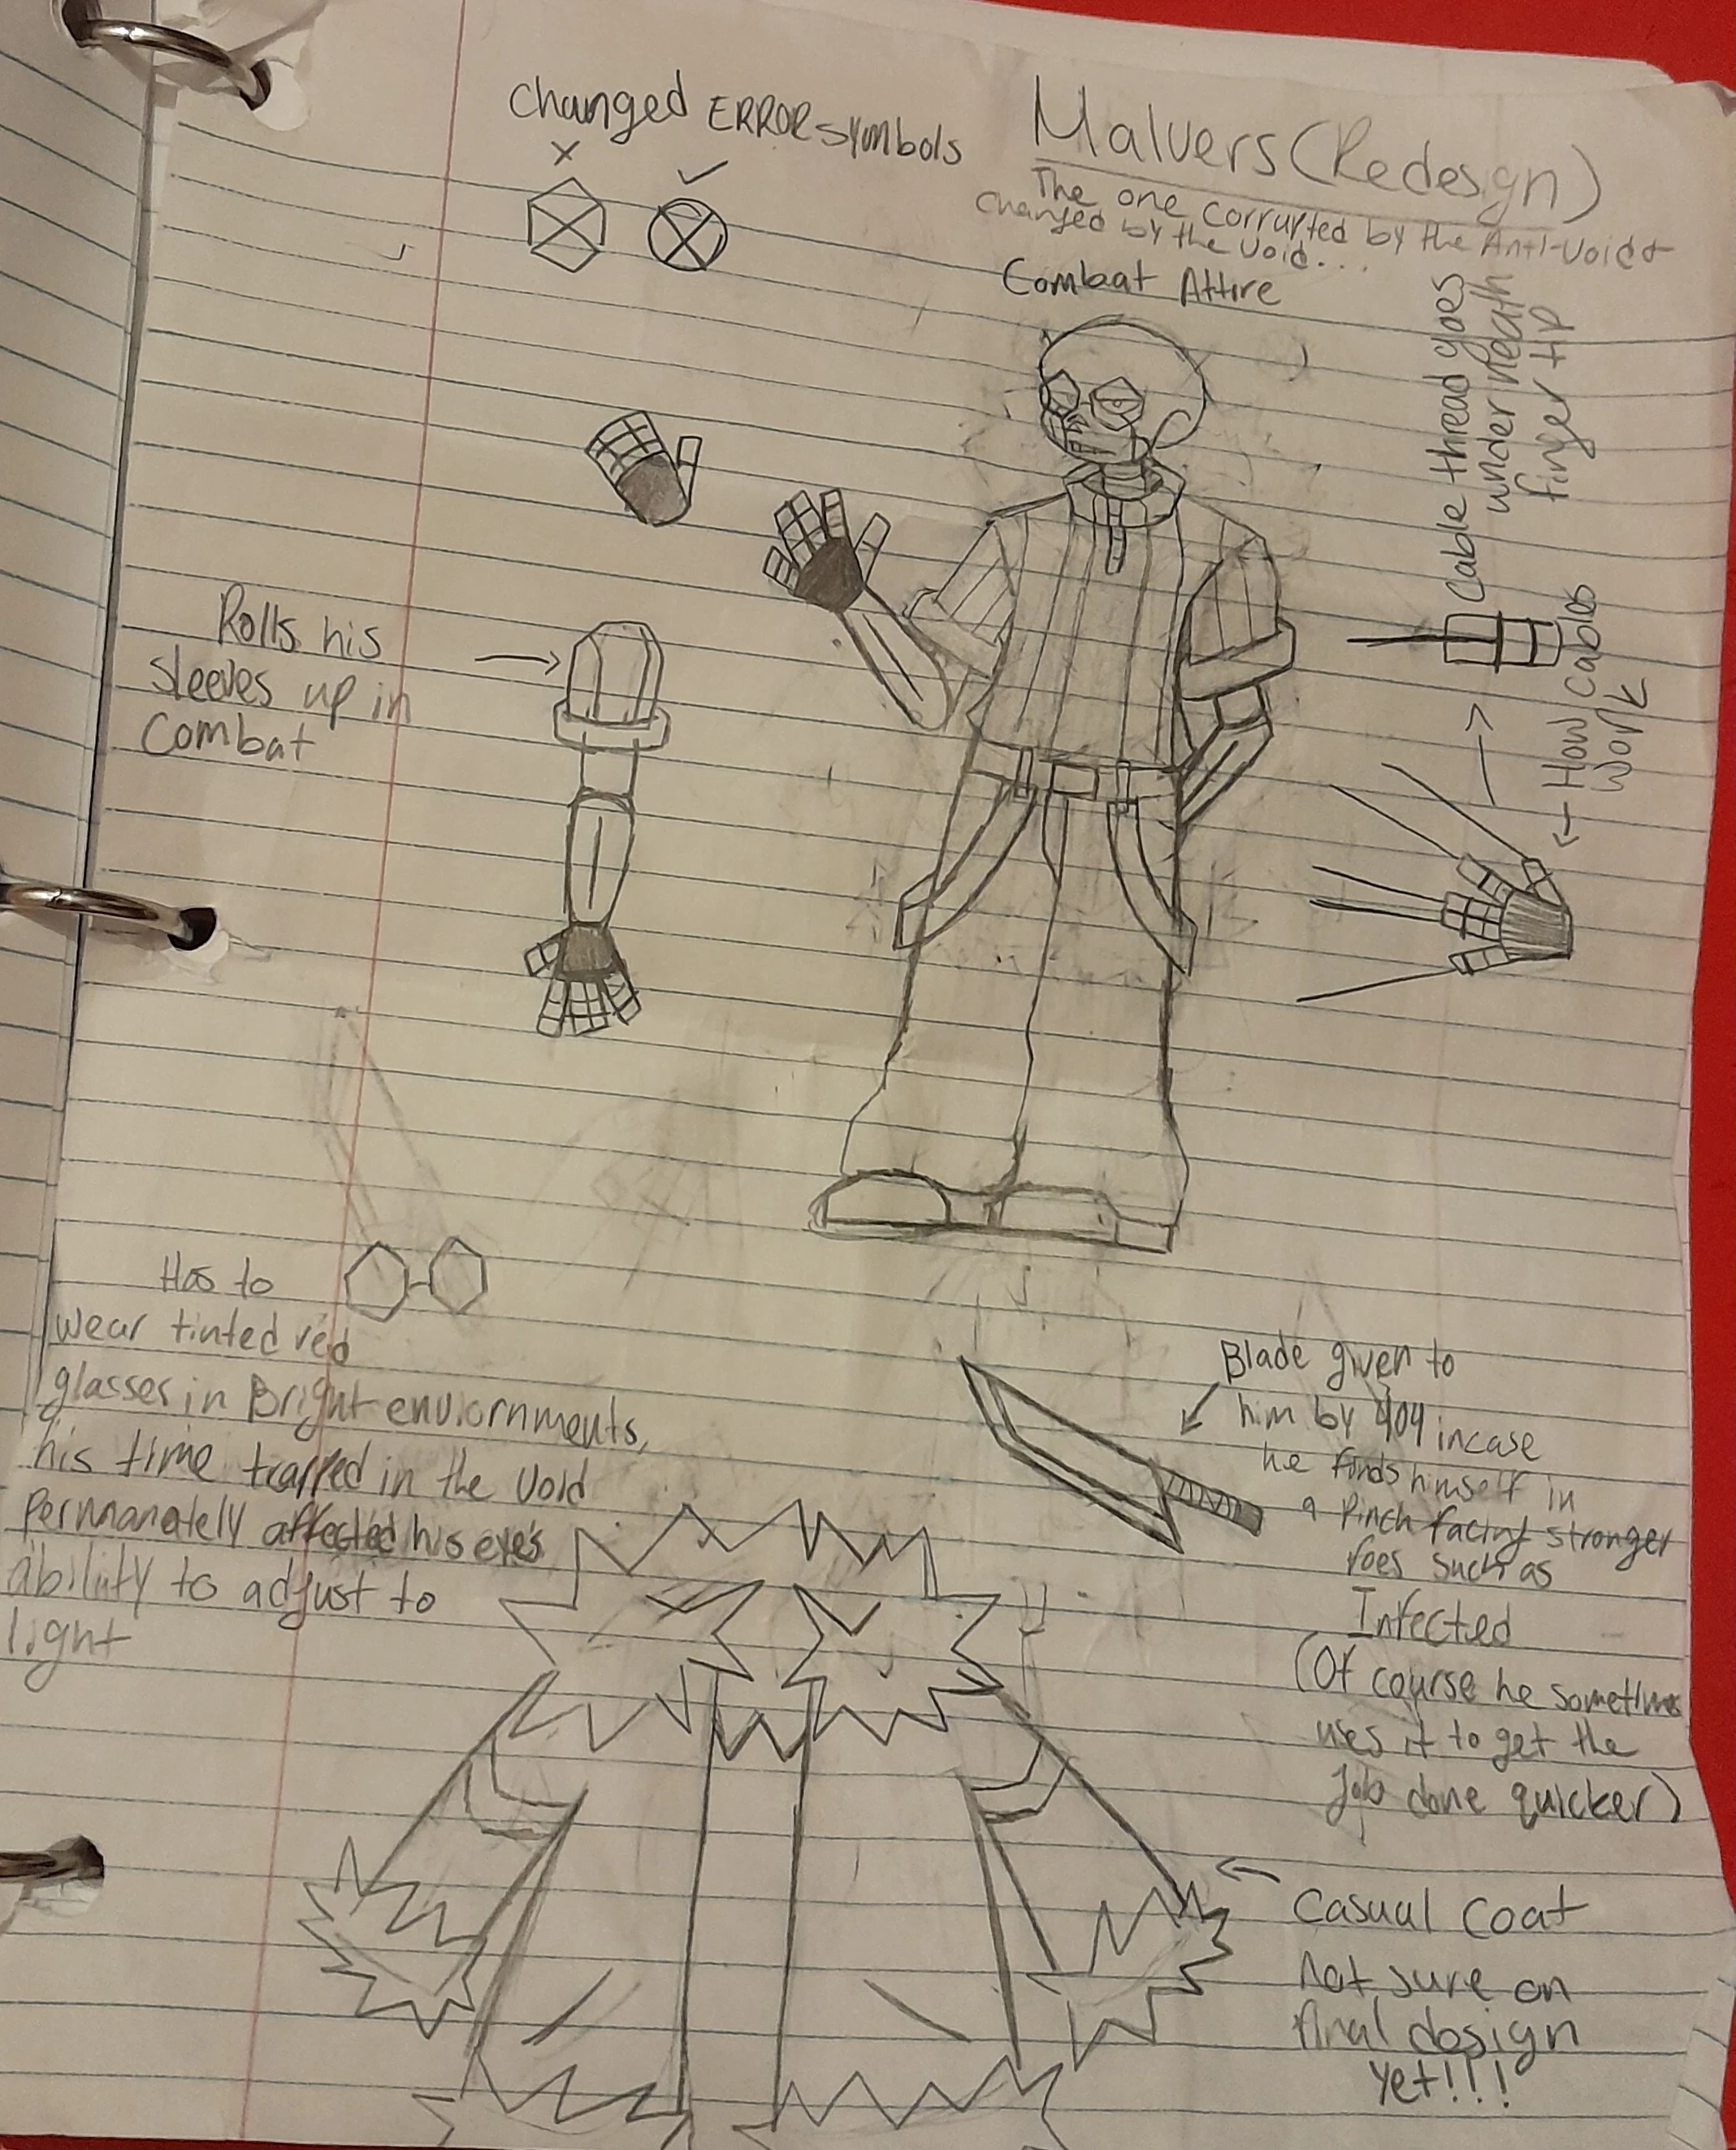 Changed ERROR symbols
Malvers (Redesign)
The one corrupted by the Anti-void &
changed by the void...
Combat Attire
Cable thread goes
underneath
finger tip
← How cables
work
Rolls his
sleeves up in
combat
Has to
wear tinted red
glasses in Bright enviornments,
his time trapped in the void
permanately affected his eye's
ability to adjust to
light
Blade given to
him by 404 incase
he finds himself in
a pinch facing stronger
foes such as
Infected
(Of course he sometimes
uses it to get the
job done quicker)
Casual coat
not sure on
final design
yet!!!